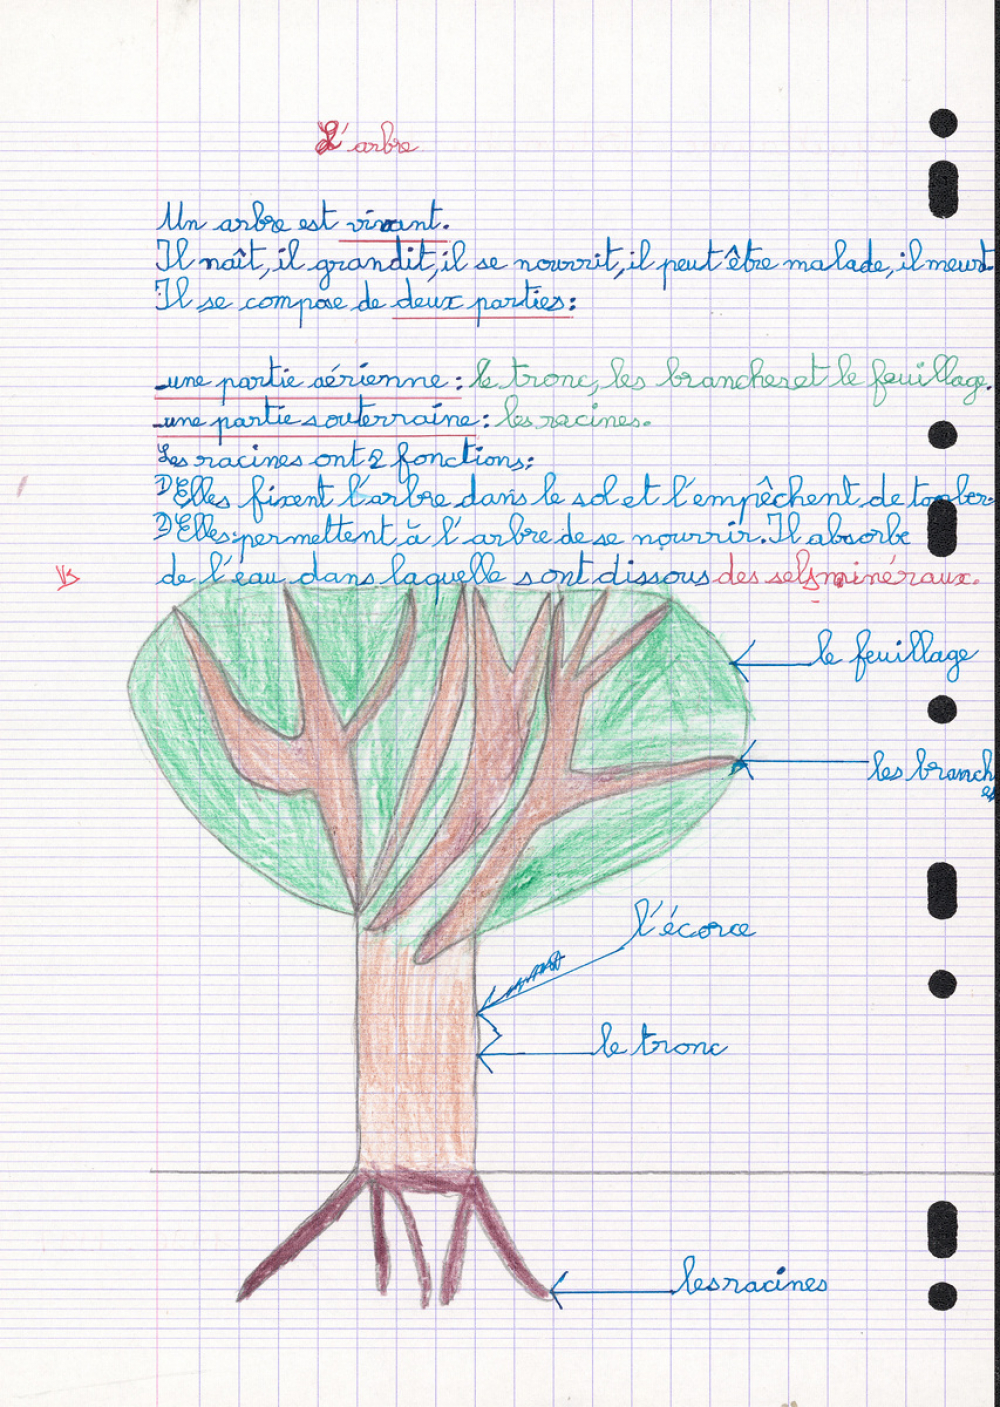 L'arbre
Un arbre est vivant.
Il naît, il grandit, il se nourrit, il peut être malade, il meurt.
Il se compose de deux parties:
-une partie aérienne: le tronc, les branches et le feuillage.
-une partie souterraine: les racines.
Les racines ont 2 fonctions:
1) Elles fixent l'arbre dans le sol et l'empêchent de tomber.
2) Elles permettent à l'arbre de se nourrir. Il absorbe
de l'eau dans laquelle sont dissous des sels minéraux.
le feuillage
les branch
es
l'écorce
le tronc
les racines